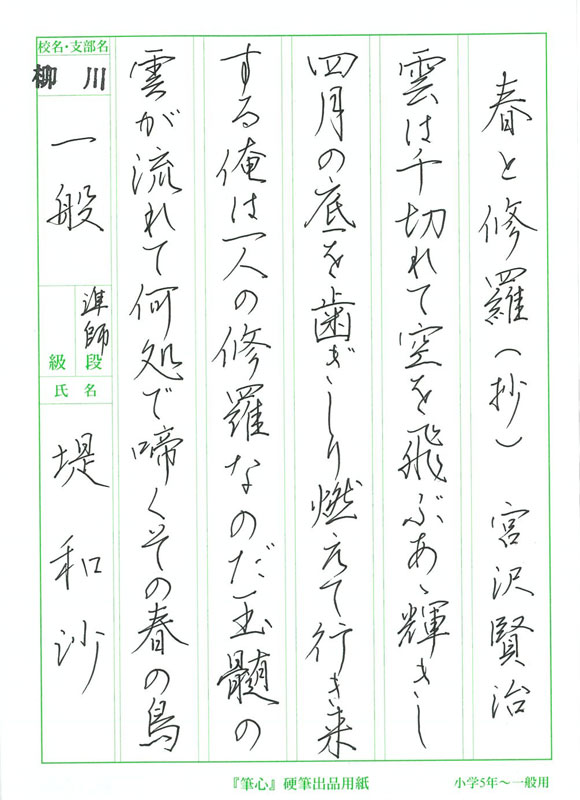 春と修羅(抄) 宮沢賢治
雲は千切れて空を飛ぶあゝ輝きし
四月の底を歯ぎしり燃えて行き来
する俺は一人の修羅なのだ玉髄の
雲が流れて何処で啼くその春の鳥
校名・支部名
柳川
一般
準師
段
級
氏名
堤和沙
『筆心』硬筆出品用紙
小学5年〜一般用